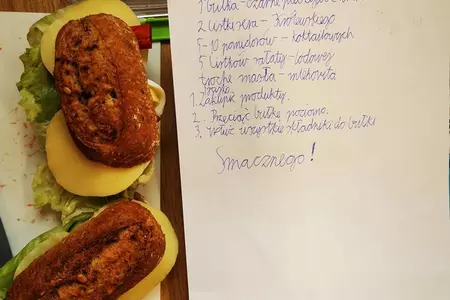 1 bułka - czarne
2 listki sera - Królewskiego
5-10 pomidorów - koktailowych
5 listków sałaty - lodowej
trochę masła - mlekovita
1. Zakupić produkty.
2. Przeciąć bułkę poziomo.
3. włóż wszystkie składniki do bułki
Smacznego!